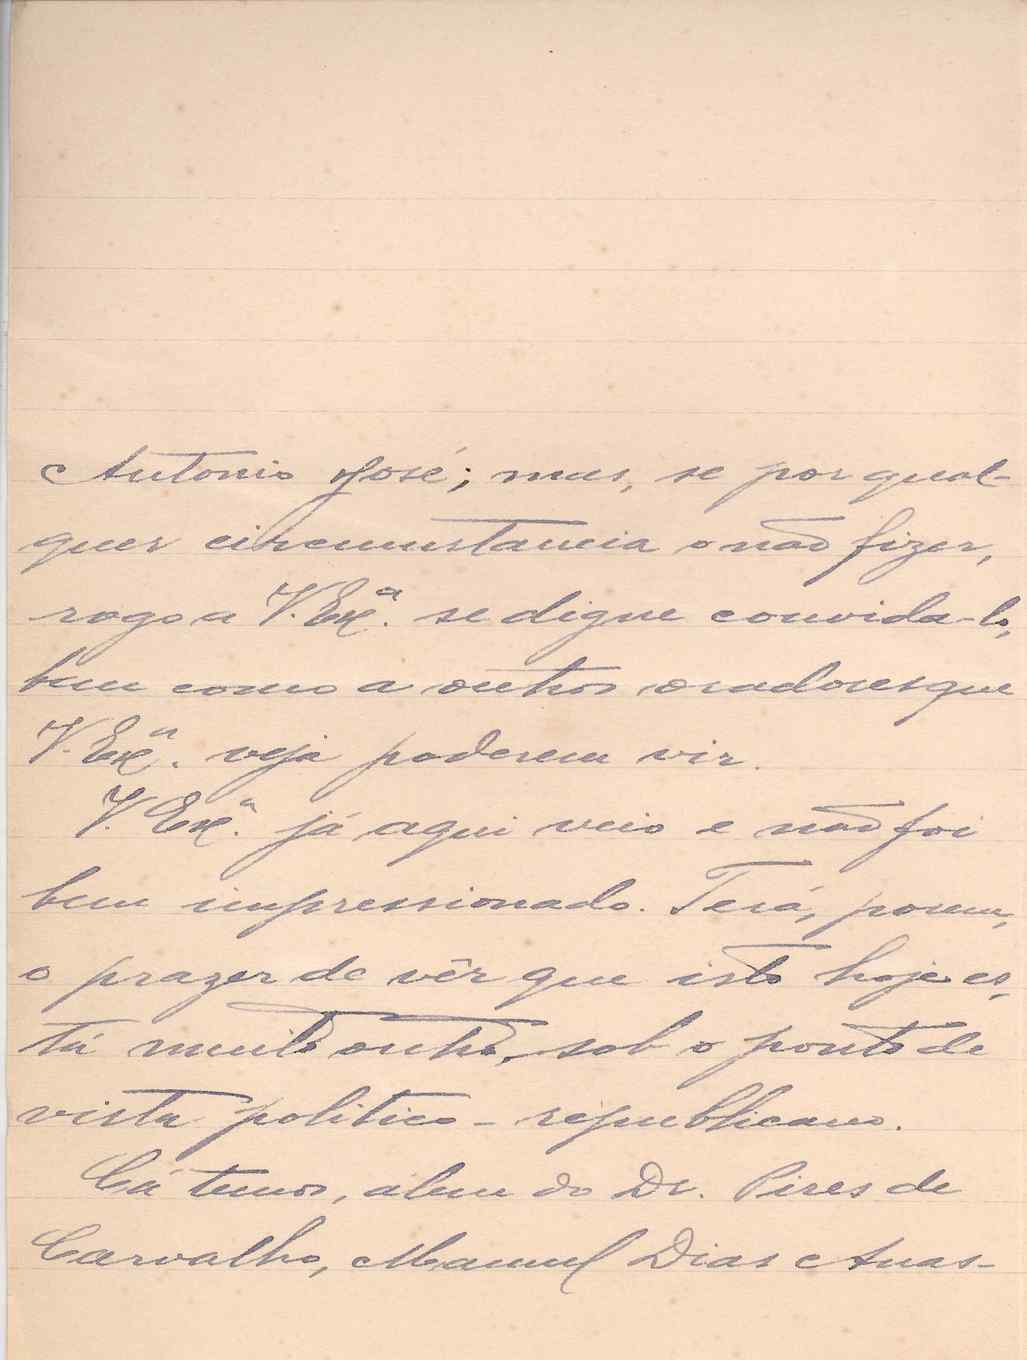 Antonio José; mas, se por qual-
quer circumstancia o não fizer,
rogo a V. Exª. se digne convida-lo,
bem como a outros oradores que
V. Exª. veja poderem vir.
V. Exª. já aqui veio e não foi
bem impressionado. Terá, porem,
o prazer de vêr que isto hoje es-
tá muito outro, sob o ponto de
vista politico-republicano.
Cá temos, alem do Dr. Pires de
Carvalho, Manuel Dias Anas-